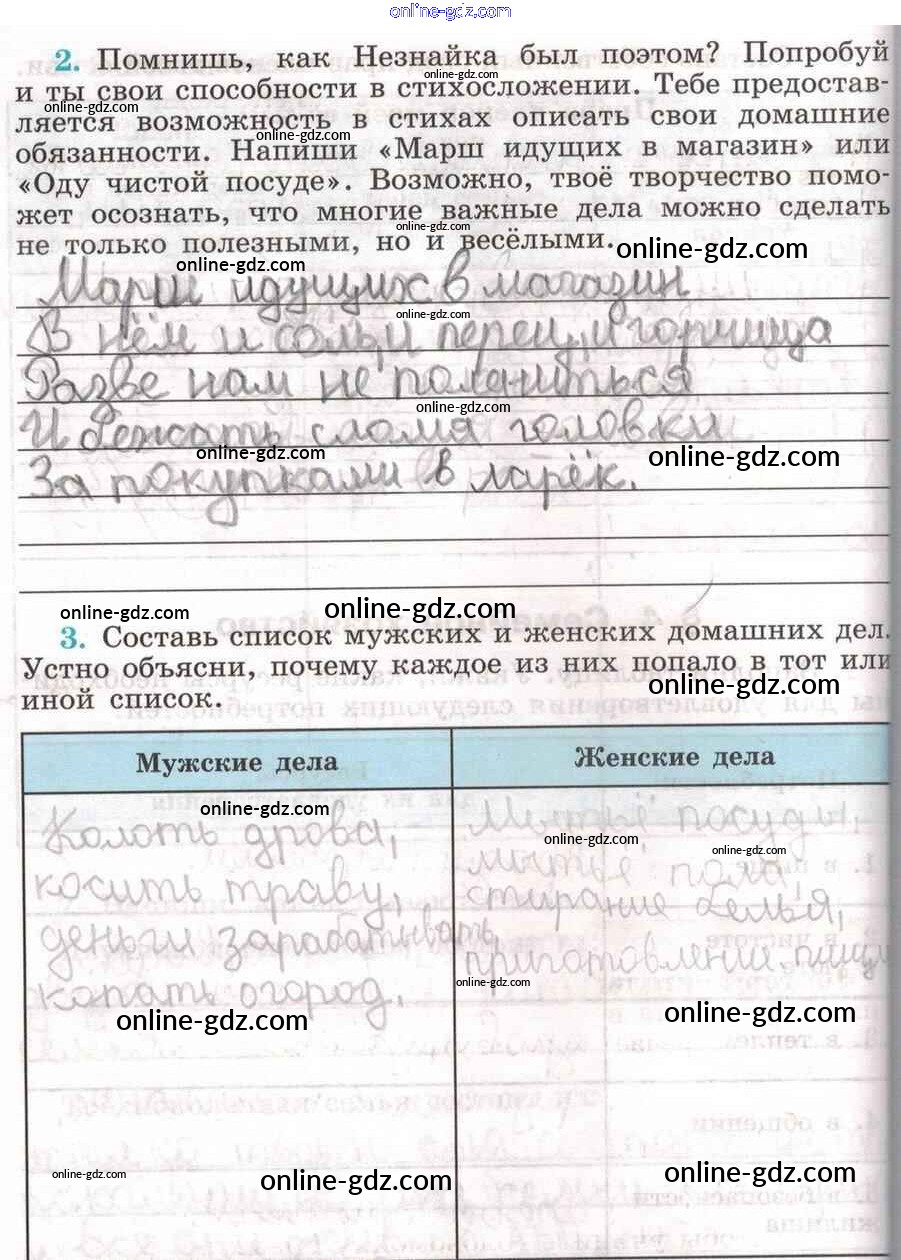 online-gdz.com
2. Помнишь, как Незнайка был поэтом? Попробуй
online-gdz.com
и ты свои способности в стихосложении. Тебе предостав-
ляется возможность в стихах описать свои домашние
online-gdz.com
обязанности. Напиши «Марш идущих в магазин» или
«Оду чистой посуде». Возможно, твоё творчество помо-
жет осознать, что многие важные дела можно сделать
online-gdz.com
не только полезными, но и весёлыми.
online-gdz.com
online-gdz.com
Марш идущих в магазин
online-gdz.com
В нём и соль, и перец, и горчица
Разве нам не полениться
online-gdz.com
И бежать сломя головки
online-gdz.com
online-gdz.com
За покупками в ларёк.
online-gdz.com
online-gdz.com
3. Составь список мужских и женских домашних дел.
Устно объясни, почему каждое из них попало в тот или
online-gdz.com
иной список.
Мужские дела
Женские дела
online-gdz.com
Колоть дрова,
Мытьё посуды,
online-gdz.com
online-gdz.com
косить траву,
мытьё пола
стирание белья,
деньги зарабатывать
приготовлений пищи
online-gdz.com
копать огород.
online-gdz.com
online-gdz.com
online-gdz.com
online-gdz.com
online-gdz.com